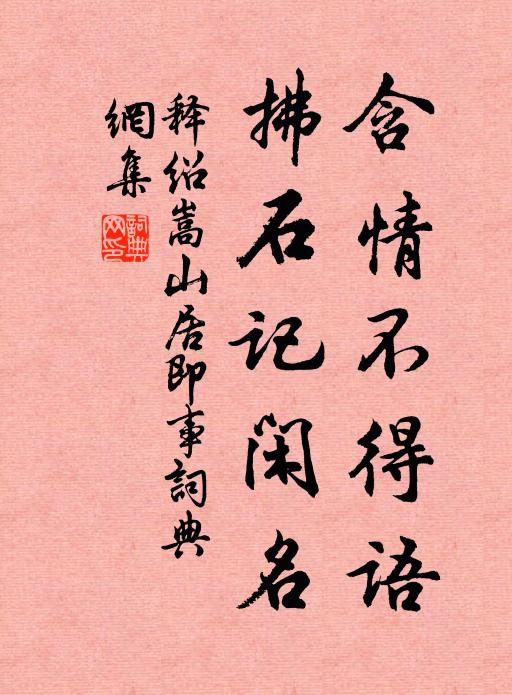 含情不得語
拂石記閑名
释绍嵩山居即事詞典
網集
詞典網印